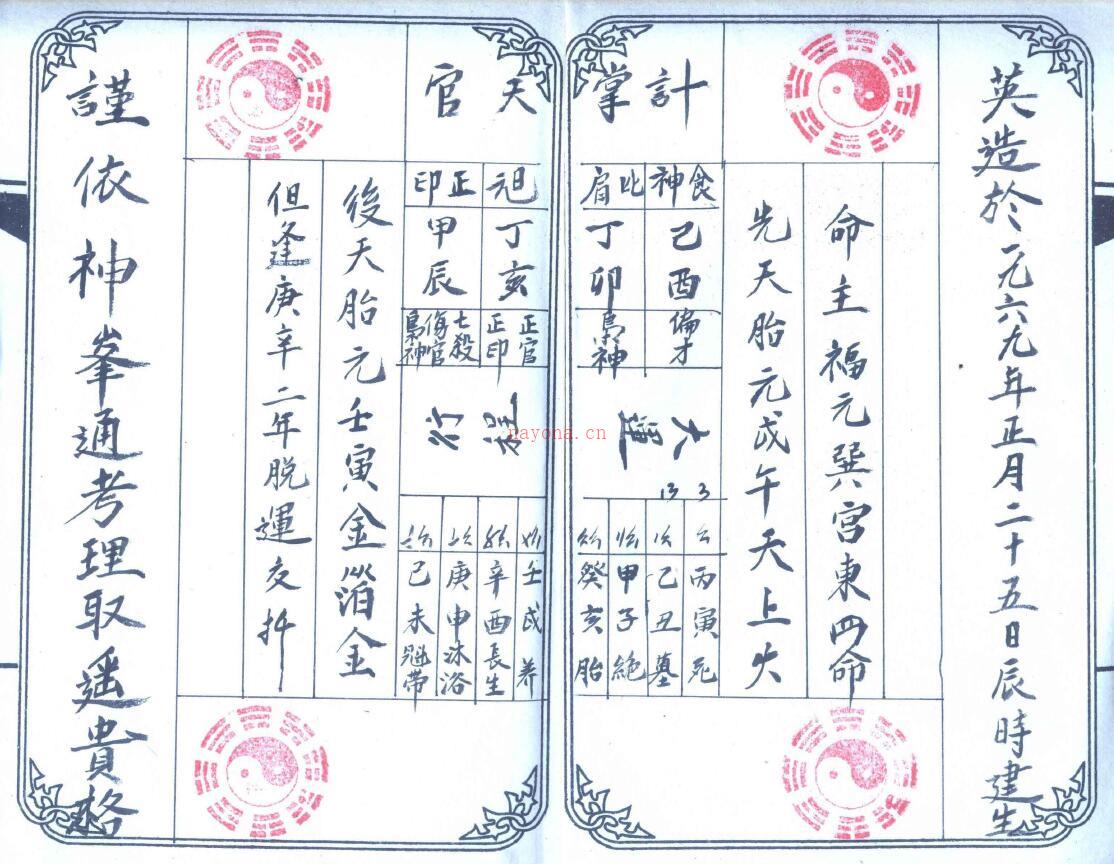 英造於一九六九年正月二十五日辰時建生
計掌
天官
命主福元巽宮東四命
先天胎元戌午天上火
食神
己
酉
偏才
比肩
丁
卯
梟神
元
丁
亥
正官
正印
正印
甲
辰
七殺
傷官
梟神
大運
行程
3
13
丙寅死
乙丑墓
甲子絕
癸亥胎
壬戌养
辛酉長生
庚申沐浴
己未冠带
後天胎元壬寅金箔金
但逢庚辛二年脱運交
謹依神峯通考理取遥貴格
nayona.cn